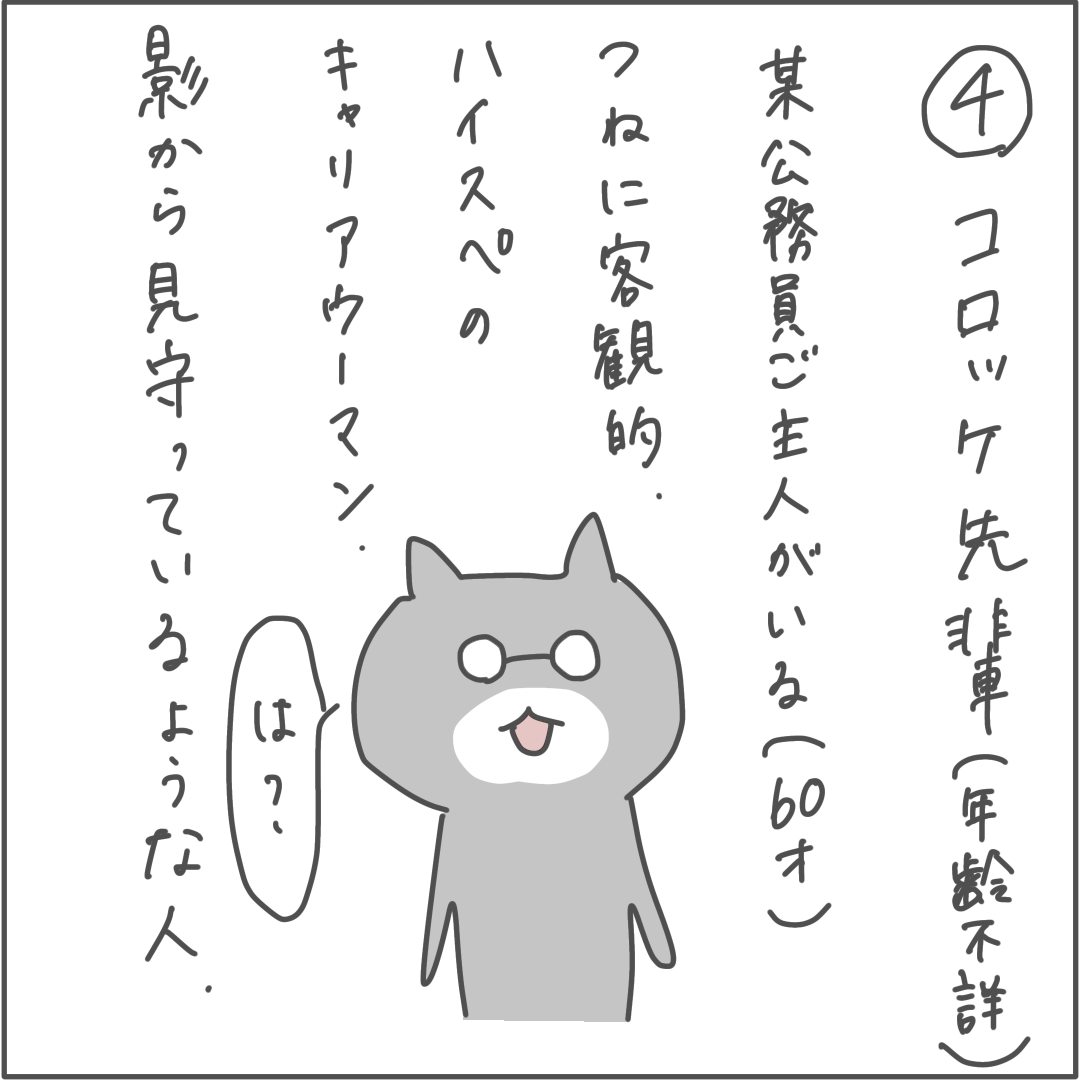 ④コロッケ先輩(年齢不詳)
某公務員ご主人がいる(60才)
つねに客観的.
ハイスペの
キャリアウーマン.
影から見守っているような人.
は?